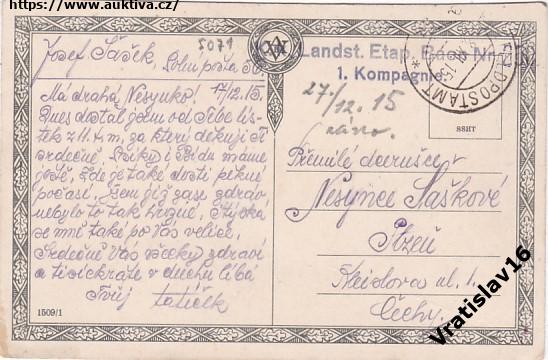 https://www.auktiva.cz/
5071
Josef Šašek, Polní pošta 56
17/12.15.
Má drahá Nesynko!
Dnes dostal jsem od Tebe lís-
tek z 11. t. m., za který děkuji Ti
srdečně.
máme
ještě. Zde je také dosti pěkné
počasí. Jsem již zase zdráv
nebylo to tak hrozné. Stýská
se mně také po Vás velice.
Srdečně Vás všecky zdraví
a tisíckráte v duchu líbá
Tvůj tatíček
1509/1
K.u.k. Landst. Etap. Baon Nr.
1. Kompagnie
FELDPOSTAMT
27/12.15
ráno.
SSHT
Přemilé dcerušce
Nesynce Šaškové
Plzeň
ul. 1.
Čechy.
Vratislav16